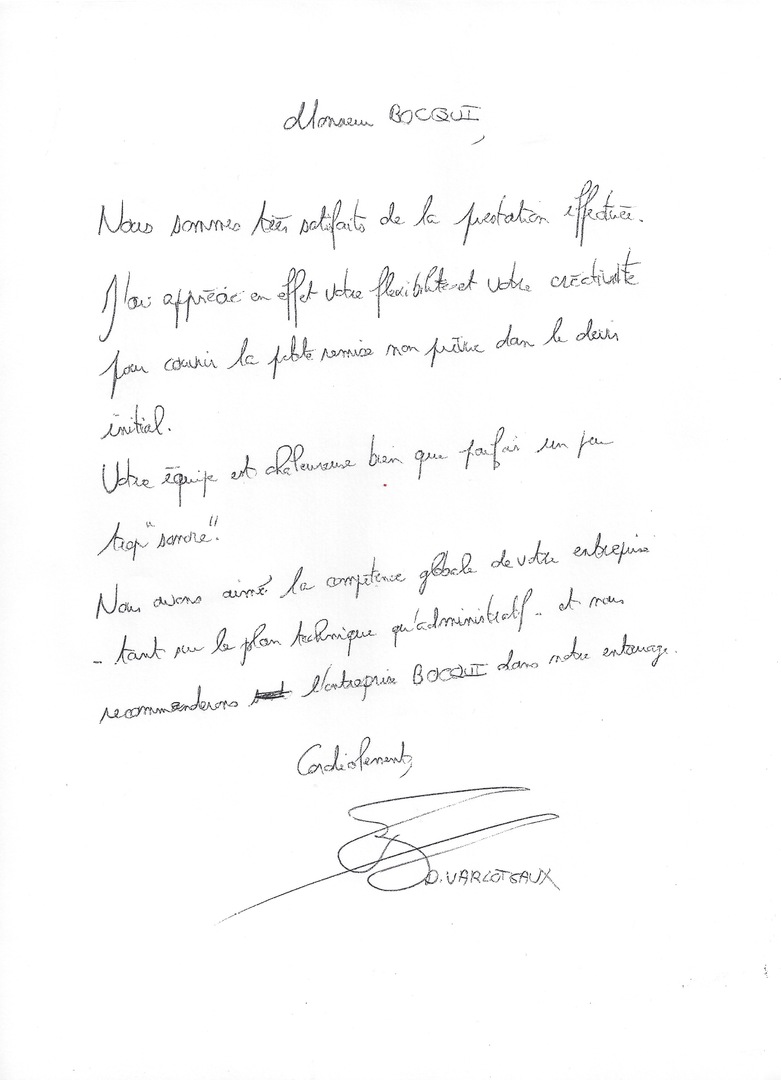 Monsieur BOCQUI,
Nous sommes très satisfaits de la prestation effectuée.
J'ai apprécié en effet votre flexibilité et votre créativité
pour couvrir la petite remise non prévue dans le devis
initial.
Votre équipe est chaleureuse bien que parfois un peu
trop "sonore".
Nous avons aimé la compétence globale de votre entreprise
- tant sur le plan technique qu'administratif - et nous
recommanderons l'entreprise BOCQUI dans notre entourage.
Cordialement,
D. VARLOTEAUX